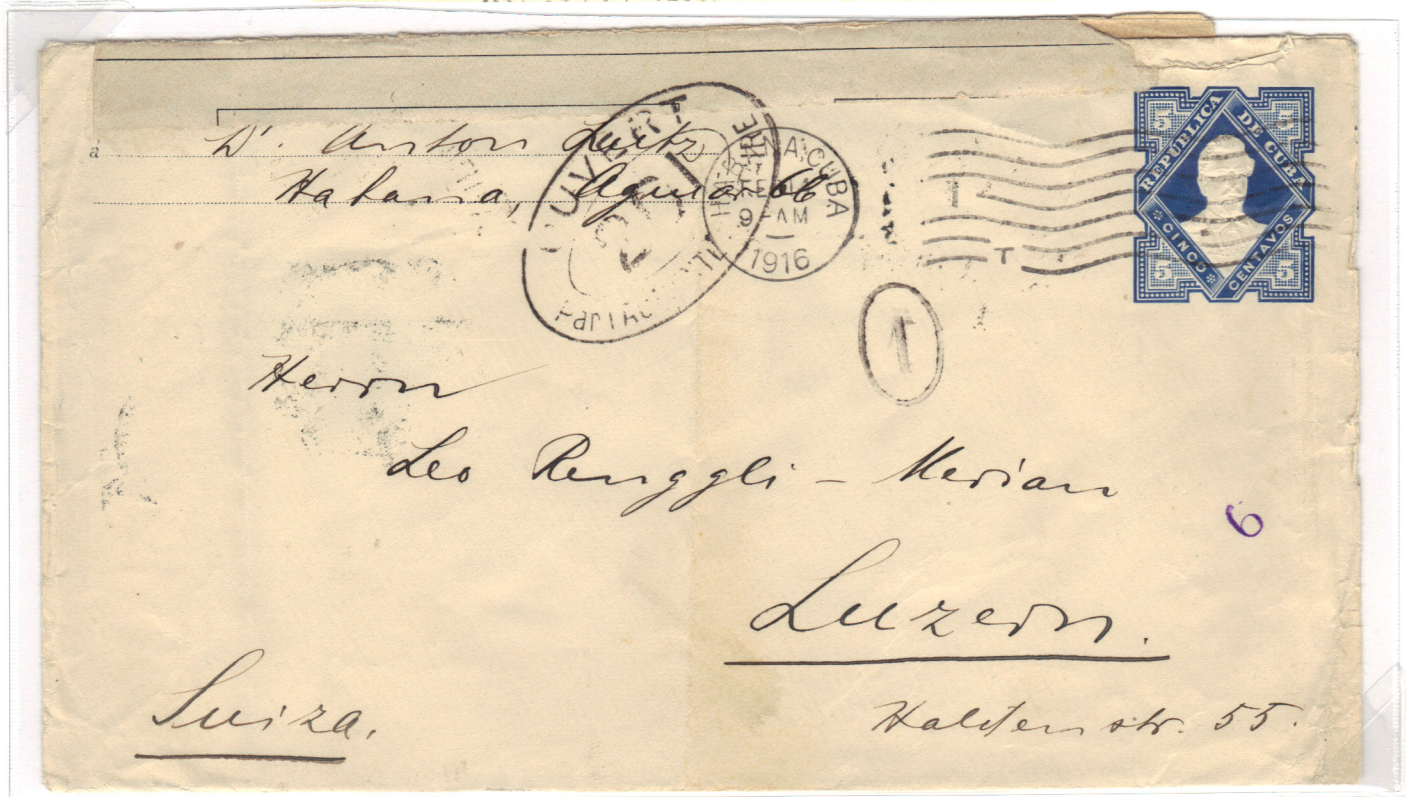 a
Dr. Anton Lutz
Habana, Aguiar 66
OUVERT
PAR L'AUTORITÉ MILITAIRE
HABANA, CUBA
FEB
9 - AM
1916
REPUBLICA DE CUBA
5 5
5 5
CINCO CENTAVOS
T
1
Herrn
Leo Renggli - Merian
6
Luzern.
Suiza.
Haldenstr. 55.